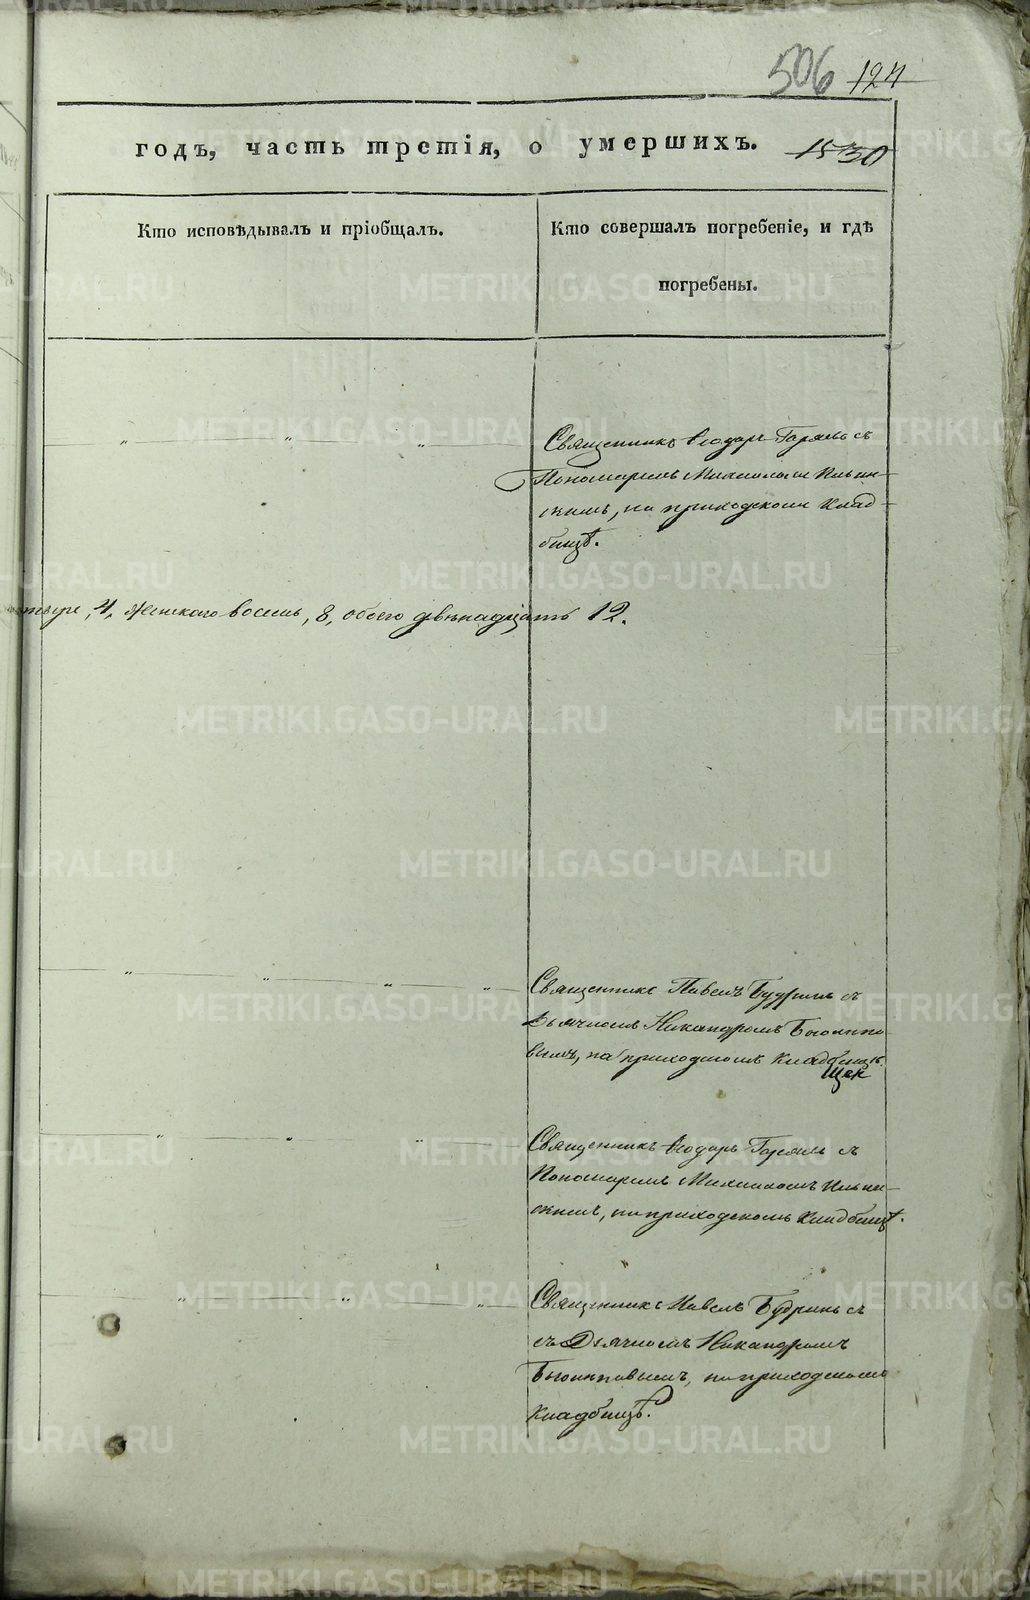 506 124
годъ, часть третія, о умершихъ. 1530
Кто исповѣдывалъ и пріобщалъ.
Кто совершалъ погребеніе, и гдѣ
погребены.
Священникъ Ѳеодоръ съ
Пономаремъ Михаиломъ Ильин-
скимъ, на приходскомъ клад-
бищѣ.
4, женскаго восемь, 8, обоего двѣнадцать 12.
Священникъ Павелъ Будринъ съ
Дьячкомъ Никандромъ
вымъ, на приходскомъ кладбищѣ.
Священникъ Ѳеодоръ съ
Пономаремъ Михаиломъ Ильин-
скимъ, на приходскомъ кладбищѣ.
Священникъ Павелъ Будринъ съ
съ Дьячкомъ Никандромъ
на приходскомъ
кладбищѣ.
METRIKI.GASO-URAL.RU